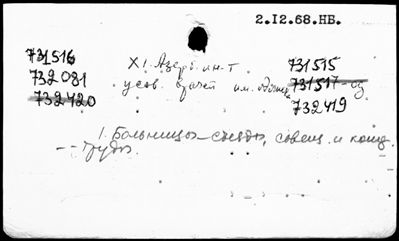 2.12.68.НВ.
731516 X! Азерб. ин-т 731515
732081 усов. врачей им. 731517
732420 732419
1. Больницы - съезды, совещ. и конф.
-- труды.